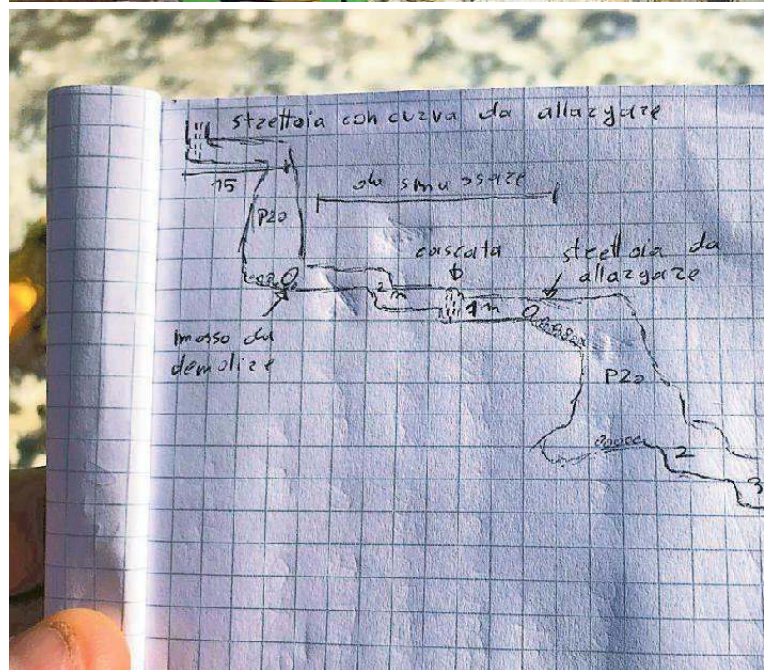 strettoia con curva da allargare
15
da smussare
P20
cascata
strettoia da
allargare
2 m
1 m
masso da
demolire
P20
2
3